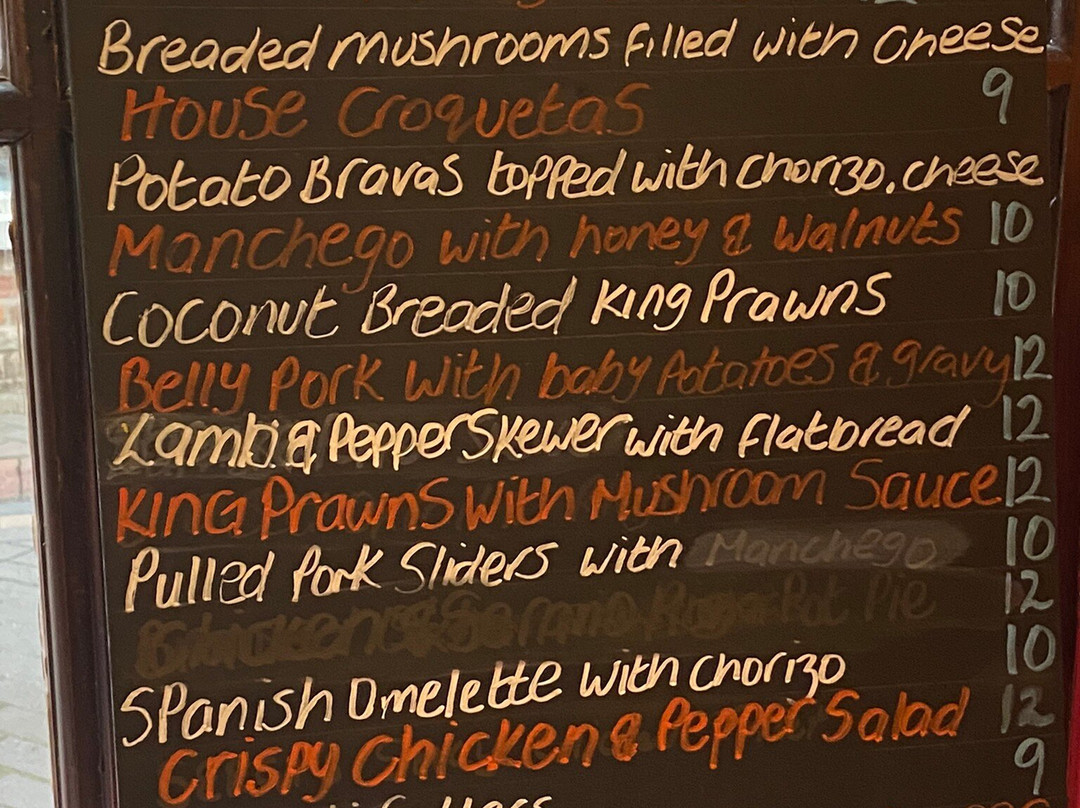 Breaded mushrooms filled with cheese
House Croquetas 9
Potato Bravas topped with chorizo, cheese
Manchego with honey & walnuts 10
Coconut Breaded King Prawns 10
Belly Pork with baby Potatoes & gravy 12
Lamb & Pepper Skewer with flatbread 12
King Prawns with Mushroom Sauce 12
Pulled Pork Sliders with Manchego 10
Pot Pie 12
10
Spanish Omelette with chorizo
Crispy Chicken & Pepper Salad 12
9